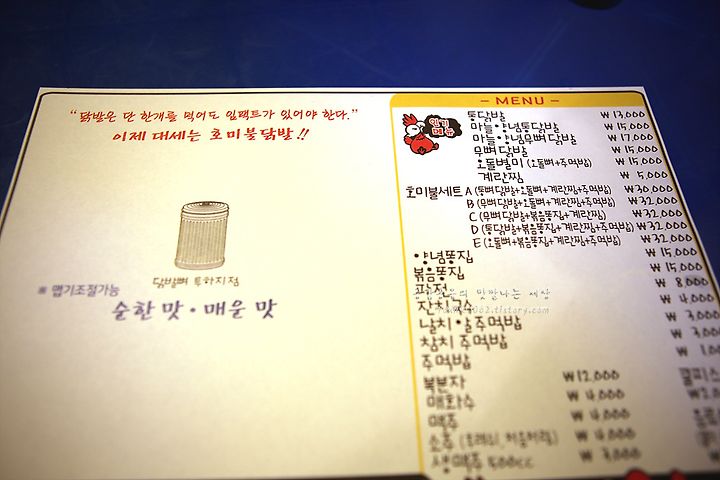 “닭발은 단 한개를 먹어도 임팩트가 있어야 한다.”
이제 대세는 호미불닭발!!
닭발뼈 투하지점
※ 맵기조절가능
순한 맛 · 매운 맛
- MENU -
인기 메뉴
통닭발 ₩13,000
마늘양념통닭발 ₩15,000
마늘양념무뼈닭발 ₩17,000
무뼈닭발 ₩15,000
오돌별미 (오돌뼈+주먹밥) ₩15,000
계란찜 ₩5,000
호미불세트 A (통뼈닭발+오돌뼈+계란찜+주먹밥) ₩30,000
B (무뼈닭발+오돌뼈+계란찜+주먹밥) ₩32,000
C (무뼈닭발+볶음똥집+계란찜) ₩32,000
D (통닭발+볶음똥집+계란찜+주먹밥) ₩32,000
E (오돌뼈+볶음똥집+계란찜+주먹밥) ₩32,000
양념똥집 ₩15,000
볶음똥집 ₩15,000
파전 ₩8,000
잔치국수 ₩4,000
날치알주먹밥 ₩3,000
참치 주먹밥 ₩3,000
주먹밥
복분자 ₩12,000
매화수 ₩4,000
맥주 ₩4,000
소주 (트레이, 처음처럼) ₩4,000
생맥주 500cc ₩3,000
맛깔나는 세상
.tistory.com